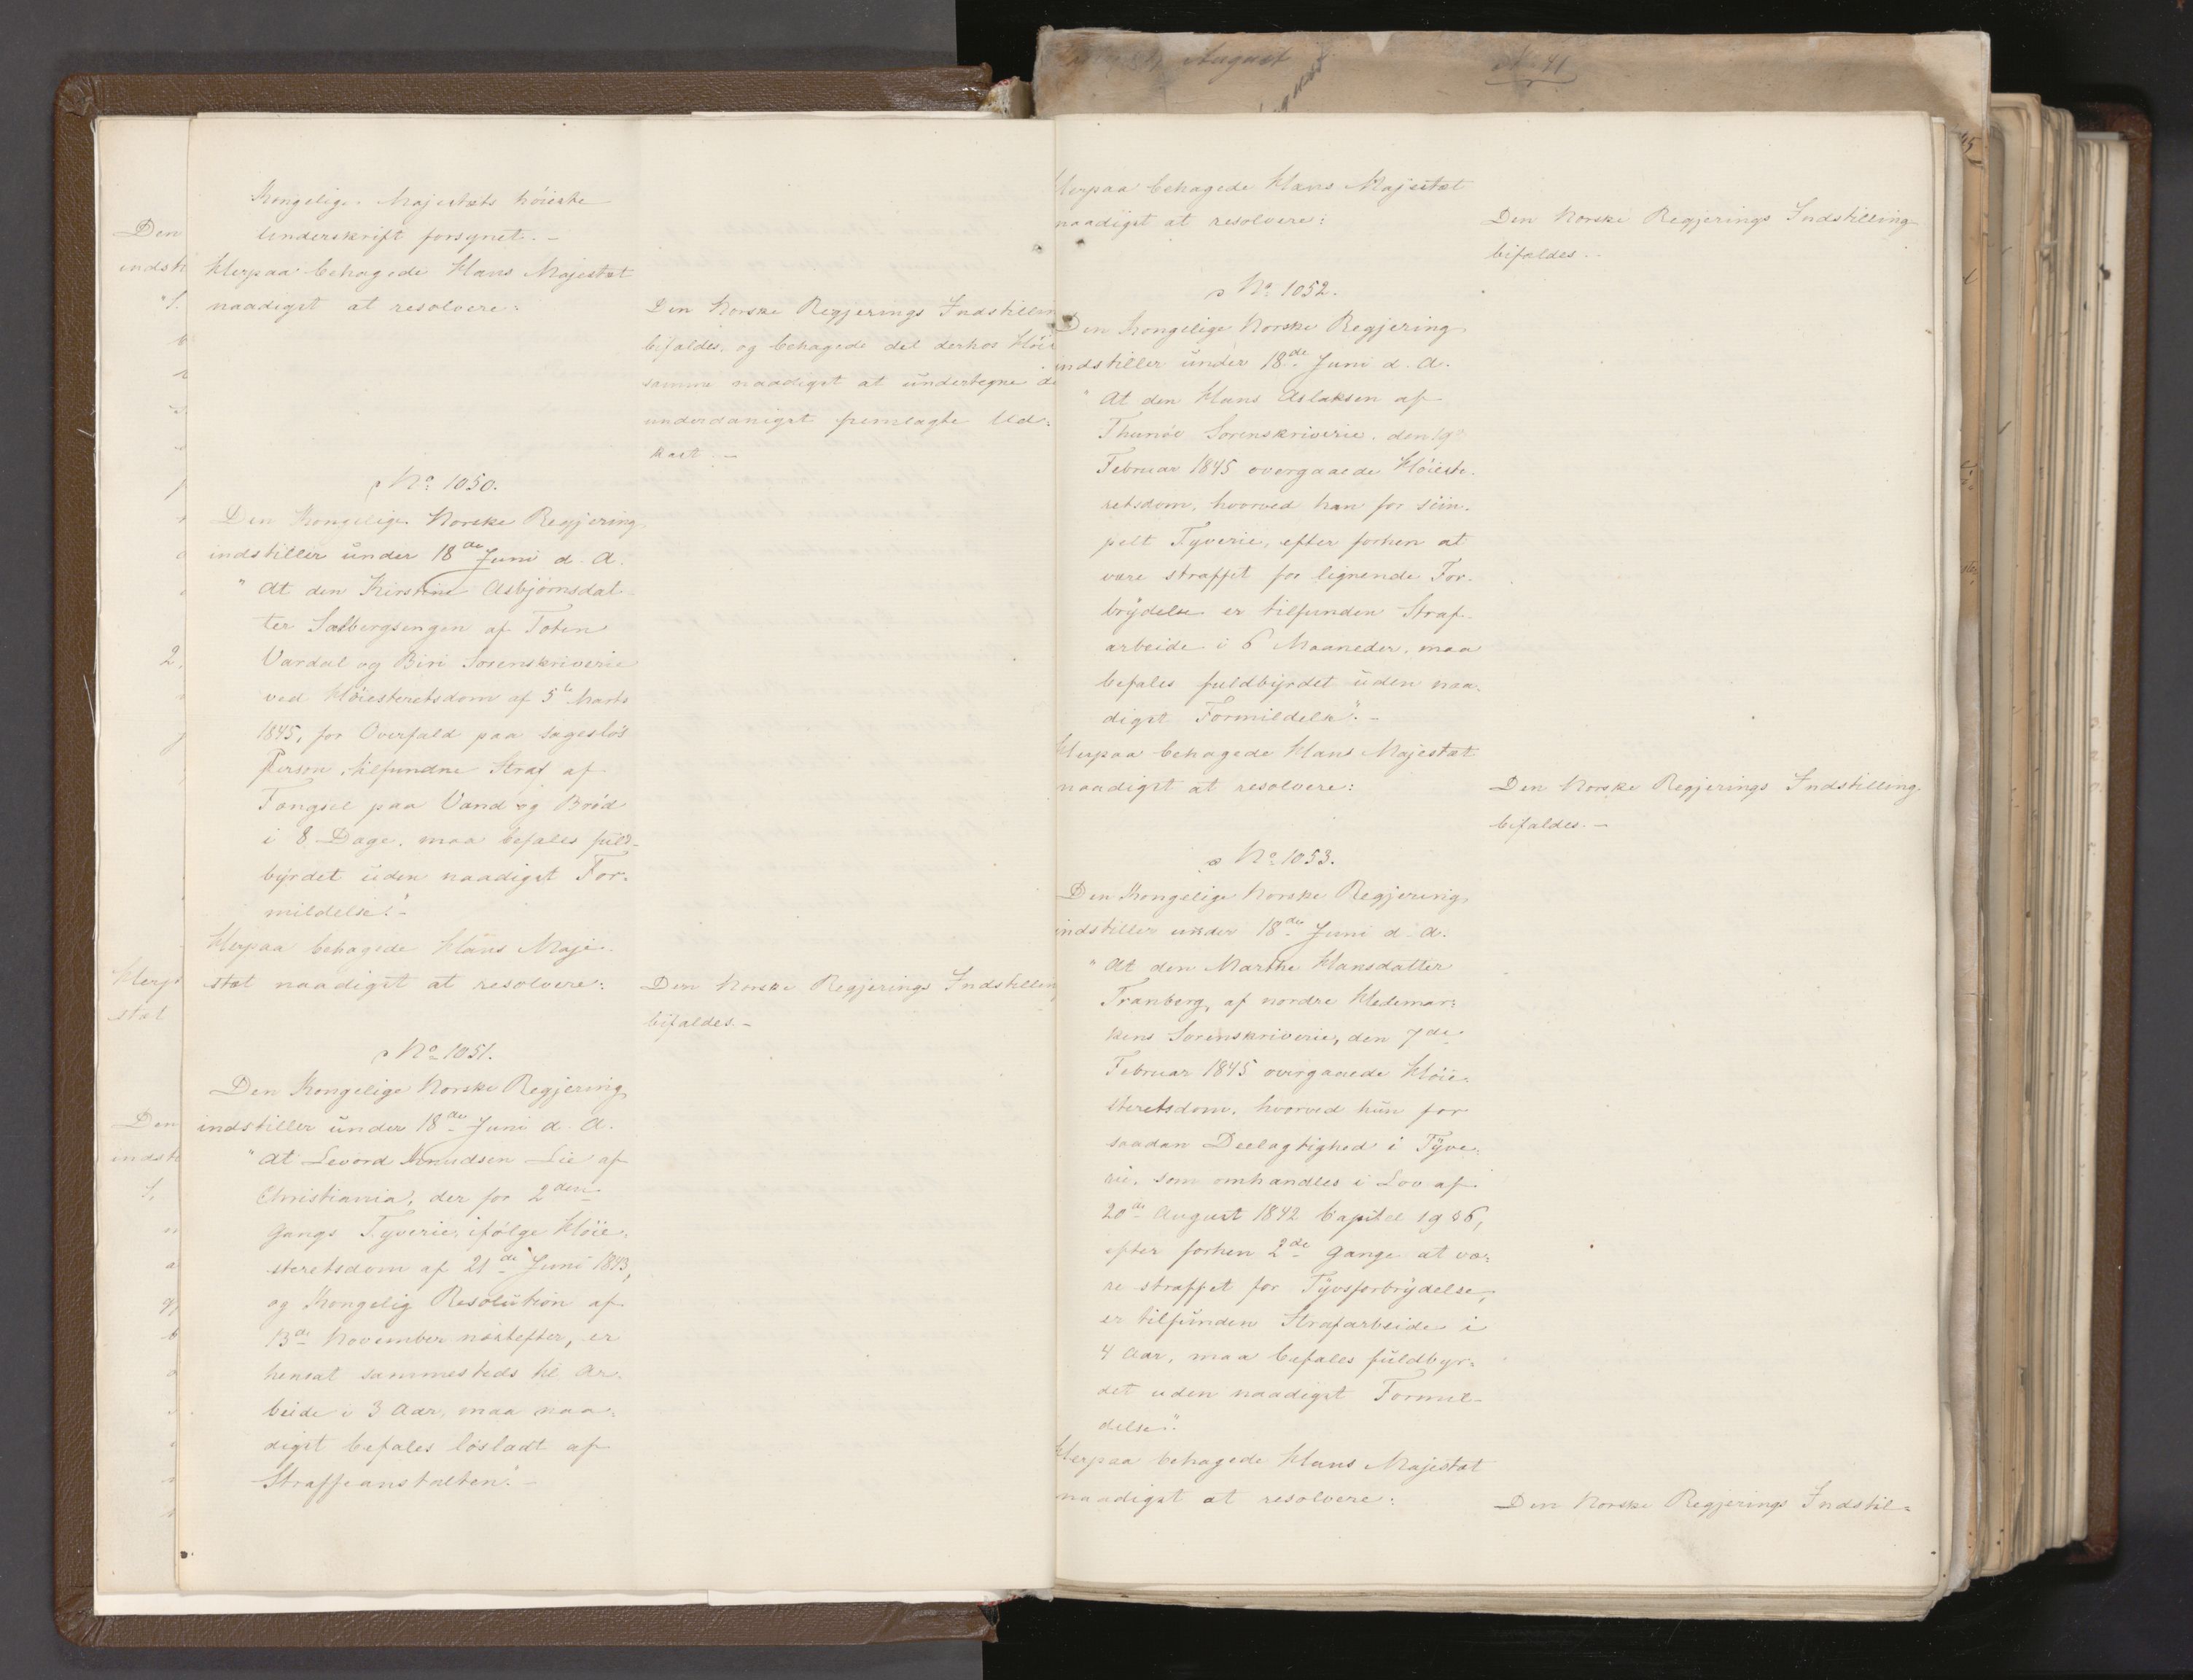 Kongelige Majestæts höieste
Underskrift forsynet. –
Herpaa behagede Hans Majestæt
naadigst at resolvere:
Den Norske Regjerings Indstillin
bifaldes, og behagede det derhos Höi
samme naadigst at undertegne de
underdanigst fremlagte Ud-
kast. –
No 1050.
Den Kongelige Norske Regjering
indstiller under 18de Juni d. A.
"At den Kirstine Asbjörnsdat-
ter Salbergsengen af Toten
Vardal og Biri Sorenskriverie
ved Höiesteretsdom af 5te Marts
1845, for Overfald paa sageslös
Person, tilfundne Straf af
Fængsel paa Vand og Bröd
i 8 Dage, maa befales fuld-
byrdet uden naadigst For-
mildelse". –
Herpaa behagede Hans Maje-
stæt naadigst at resolvere:
Den Norske Regjerings Indstillin
bifaldes. –
No 1051.
Den Kongelige Norske Regjering
indstiller under 18de Juni d. A.
"At Levord Knudsen Lie af
Christiania, der for 2den
Gangs Tyverie, ifölge Höie-
steretsdom af 21de Juni 1843,
og Kongelig Resolution af
13de November næstefter, er
hensat sammesteds til Ar-
beide i 3 Aar, maa naa-
digst befales lösladt af
Straffeanstalten". –
Herpaa behagede Hans Majestæt
naadigst at resolvere:
Den Norske Regjerings Indstilling
bifaldes. –
No 1052.
Den Kongelige Norske Regjering
indstiller under 18de Juni d. A.
"At den Hans Aslaksen af
Sorenskriverie, den 19
Februar 1845 overgaaede Höieste-
retsdom, hvorved han for sim-
pelt Tyverie, efter forhen at
være straffet for lignende For-
brydelse er tilfunden Straf-
arbeide i 6 Maaneder, maa
befales fuldbyrdet uden naa-
digst Formildelse". –
Herpaa behagede Hans Majestæt
naadigst at resolvere:
Den Norske Regjerings Indstilling
bifaldes. –
No 1053.
Den Kongelige Norske Regjering
indstiller under 18de Juni d. A.
"At den Marthe Hansdatter
Tranberg, af nordre Hedemar-
kens Sorenskriverie, den 7de
Februar 1845 overgaaede Höie-
steretsdom, hvorved hun for
saadan Deelagtighed i Tyve-
rie, som omhandles i Lov af
20de August 1842 Capitel 19 § 6,
efter forhen 2de Gange at væ-
re straffet for Tyvsforbrydelse,
er tilfunden Strafarbeide i
4 Aar, maa befales fuldbyr-
det uden naadigst Formil-
delse".
Herpaa behagede Hans Majestæt
naadigst at resolvere:
Den Norske Regjerings Indstil-